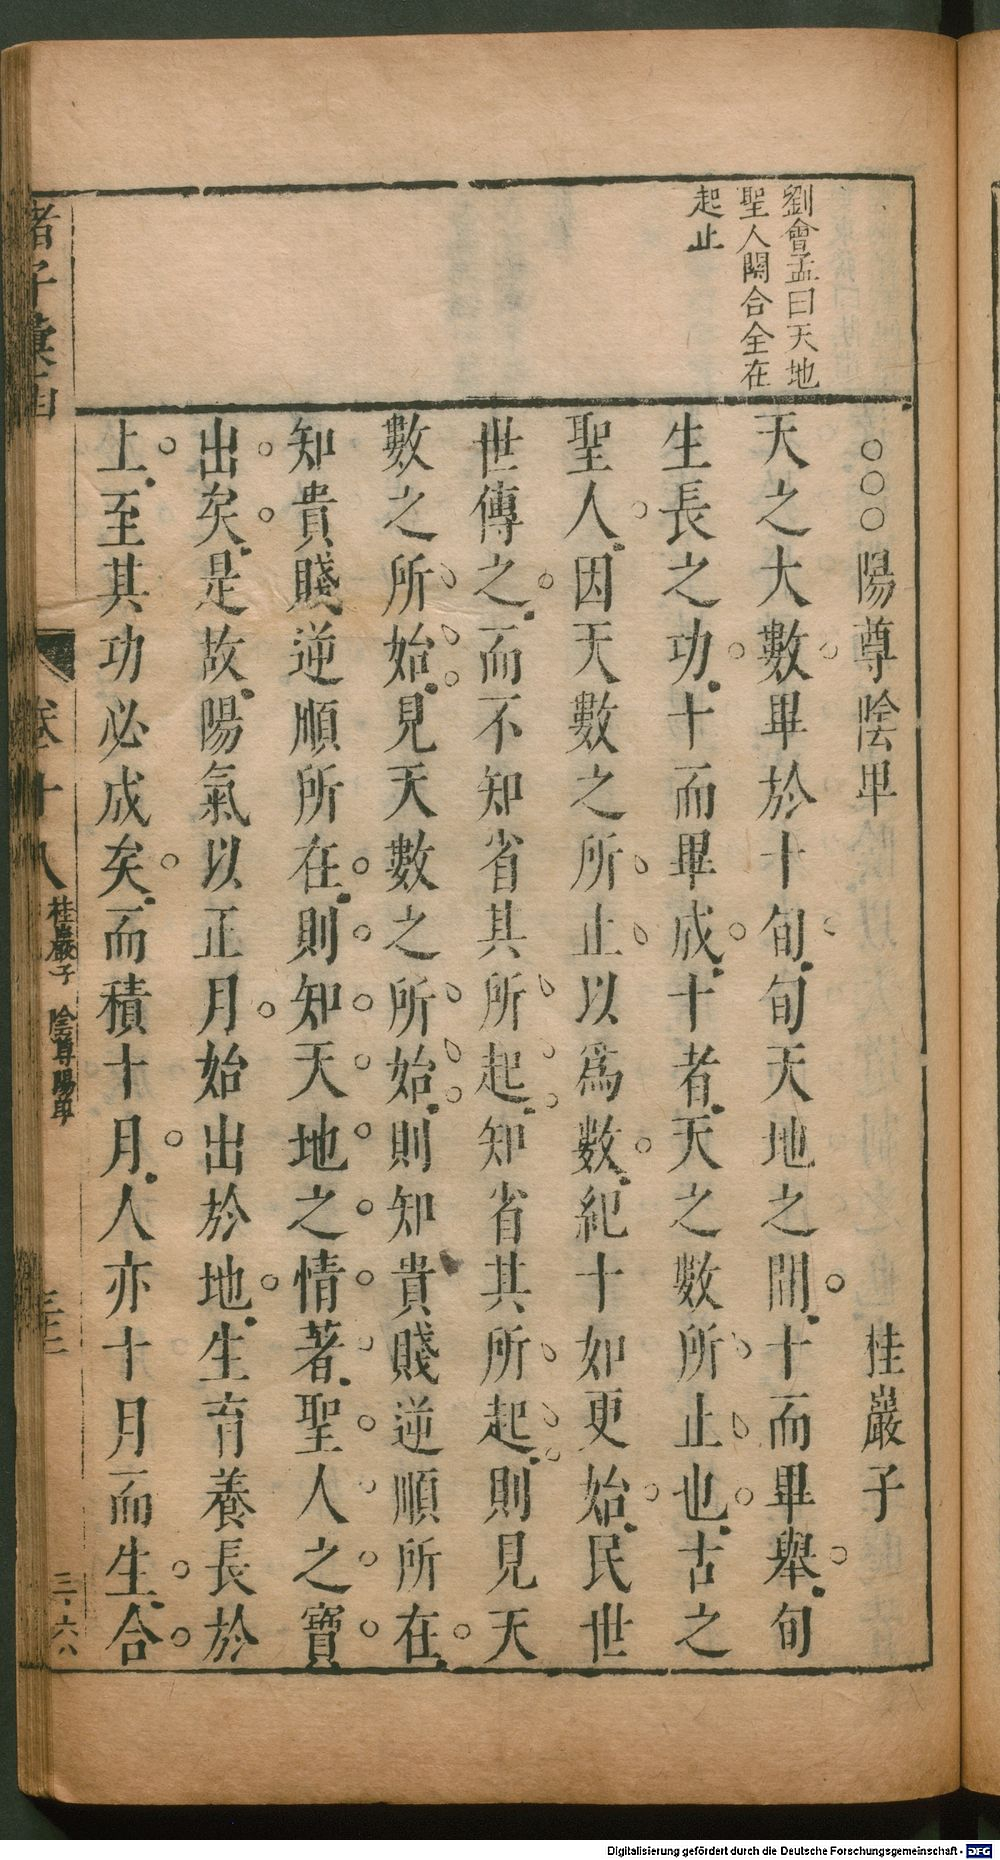 劉會孟曰天地
聖人關合全在
起止
○○○陽尊陰卑 桂巖子
天之大數畢於十旬旬天地之間十而畢舉旬
生長之功十而畢成十者天之數所止也古之
聖人因天數之所止以爲數紀十如更始民世
世傳之而不知省其所起知省其所起則見天
數之所始見天數之所始則知貴賤逆順所在
知貴賤逆順所在則知天地之情著聖人之寶
出矣是故陽氣以正月始出於地生育養長於
上至其功必成矣而積十月人亦十月而生合
諸子彙函 卷十八 桂巖子 陰尊陽卑
Digitalisierung gefördert durch die Deutsche Forschungsgemeinschaft - DFG